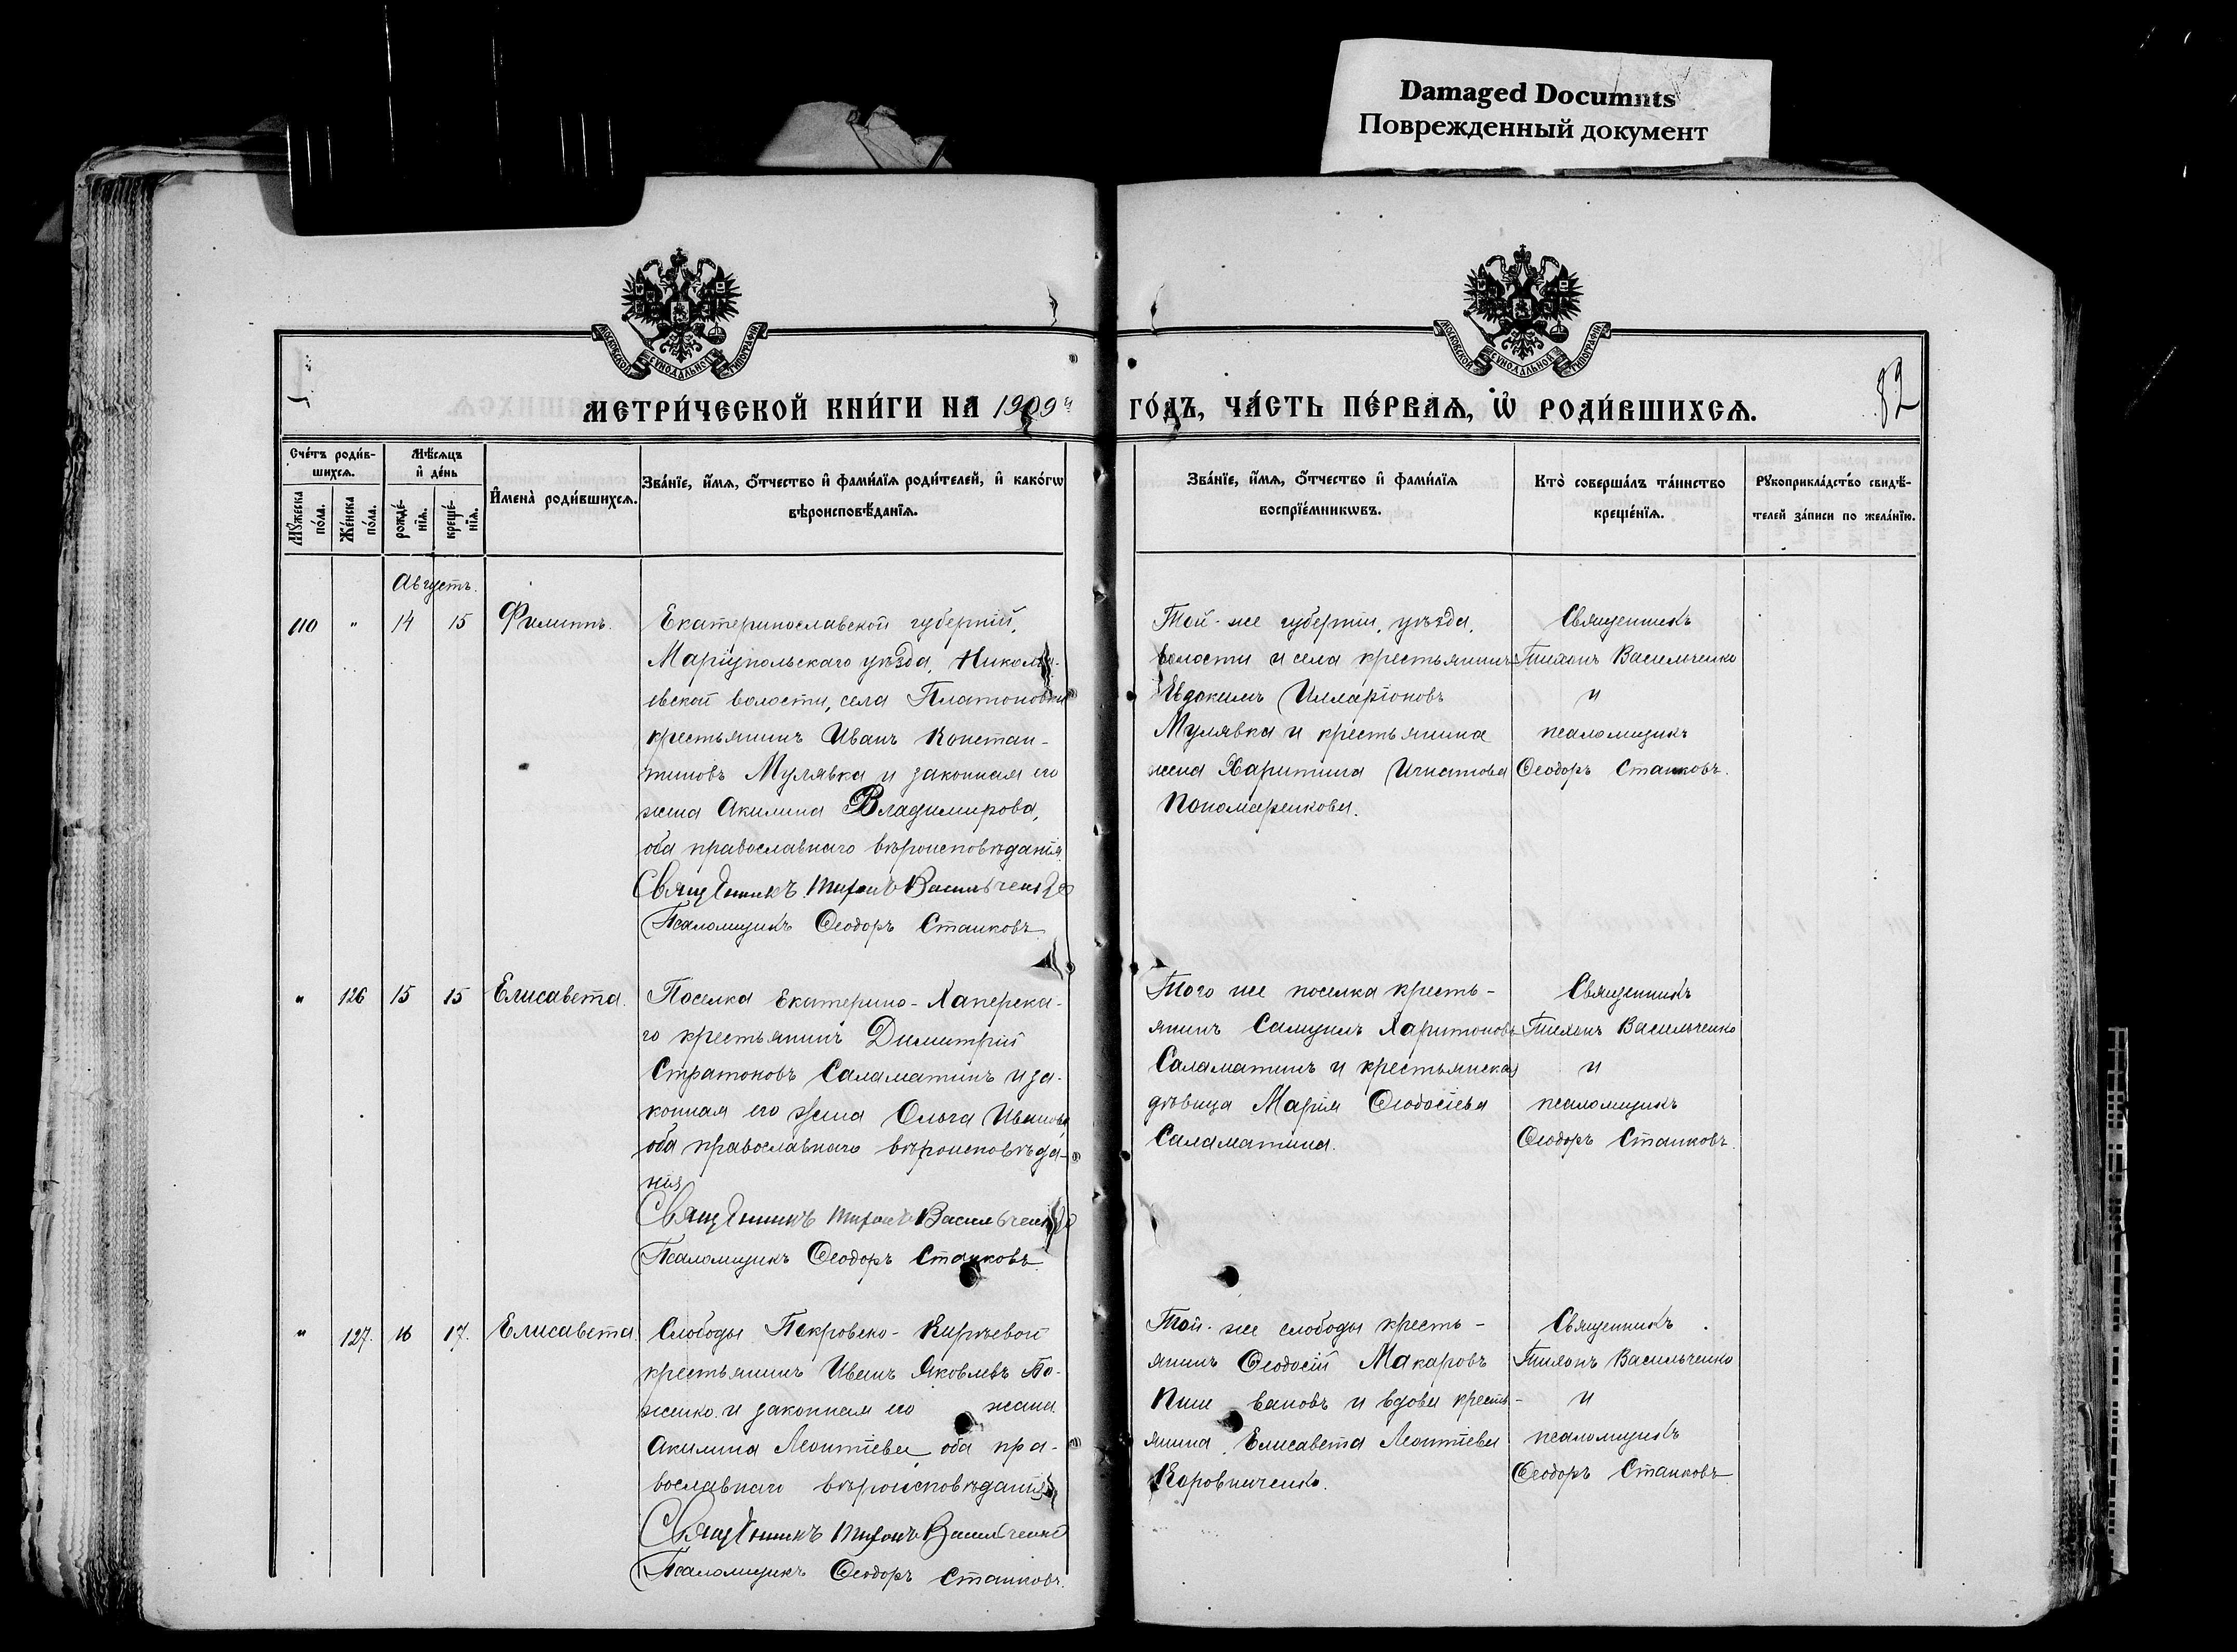 Damaged Documnts
Поврежденный документ
МОСКОВСКОЙ СѴНОДАЛЬНОЙ ТИПОГРАФІИ
МОСКОВСКОЙ СѴНОДАЛЬНОЙ ТИПОГРАФІИ
82
МЕТРИ́ЧЕСКОЙ КНИ́ГИ НА 1909й ГО́ДЪ, ЧА́СТЬ ПЕ́РВАѦ, Ѡ҆ РОДИ́ВШИХСѦ.
Сче́тъ роди́в-
шихсѧ.
Мꙋ́жеска по́ла.
Же́нска по́ла.
Мѣ́сѧцъ
и҆ де́нь
рожде́-
нїѧ.
креще́-
нїѧ.
И҆мена̀ роди́вшихсѧ.
Зва́нїе, и҆́мѧ, ѻ҆́тчество и҆ фами́лїѧ роди́телей, и҆ како́гѡ
вѣроисповѣ́данїѧ.
Зва́нїе, и҆́мѧ, ѻ҆́тчество и҆ фами́лїѧ
воспрїе́мникѡвъ.
Кто̀ соверша́лъ та́инство
креще́нїѧ.
Рꙋкоприкла́дство свидѣ́-
телей за́писи по жела́нїю.
Августъ.
110 " 14 15 Филиппъ.
Екатеринославской губерніи,
Маріупольскаго уѣзда, Никола-
евской волости, села Платоновки
крестьянинъ Иванъ Констан-
тиновъ Мулявка и законная его
жена Акилина Владимирова,
оба православнаго вѣроисповѣданія.
Священникъ Тихонъ Васильченко
Псаломщикъ Ѳеодоръ Станковъ
Той-же губерніи, уѣзда,
волости и села крестьянинъ
Евдокимъ Илларіоновъ
Мулявка и крестьянина
жена Харитина Игнатова
Пономаренкова.
Священникъ
Тихонъ Васильченко
и
псаломщикъ
Ѳеодоръ Станковъ.
" 126 15 15 Елисавета.
Поселка Екатерино-Хаперска-
го крестьянинъ Димитрій
Стратоновъ Саламатинъ и за-
конная его жена Ольга Иванова
оба православнаго вѣроисповѣда-
нія
Священникъ Тихонъ Васильченко
Псаломщикъ Ѳеодоръ Станковъ
Того же поселка кресть-
янинъ Самуилъ Харитоновъ
Саламатинъ и крестьянская
дѣвица Марія Ѳеодосіева
Саламатина.
Священникъ
Тихонъ Васильченко
и
псаломщикъ
Ѳеодоръ Станковъ.
" 127. 16 17. Елисавета
Слободы Покровско-Кирѣевой
крестьянинъ Иванъ Яковлевъ Бо-
женко и законная его жена
Акилина Леонтіева оба пра-
вославнаго вѣроисповѣданія
Священникъ Тихонъ Васильченко
Псаломщикъ Ѳеодоръ Станковъ.
Той-же слободы кресть-
янинъ Ѳеодосій Макаровъ
вановъ и вдова кресть-
янина Елисавета Леонтіева
Коровниченко.
Священникъ
Тихонъ Васильченко
и
псаломщикъ
Ѳеодоръ Станковъ